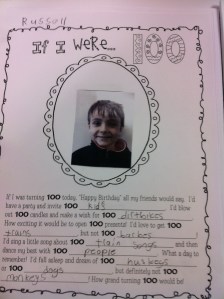 Russell
If I Were... 100
If I was turning 100 today, "Happy Birthday" all my friends would say. I'd
have a party and invite 100 kids. I'd blow
out 100 candles and make a wish for 100 dirtbikes.
How exciting it would be to open 100 presents! I'd love to get 100
trains, but not 100
I'd sing a little song about 100 train songs and then
dance my best with 100 people. What a day to
remember! I'd fall asleep and dream of 100 huskeys
at 100 days, but definitely not 100
monkeys! How grand turning 100 would be!